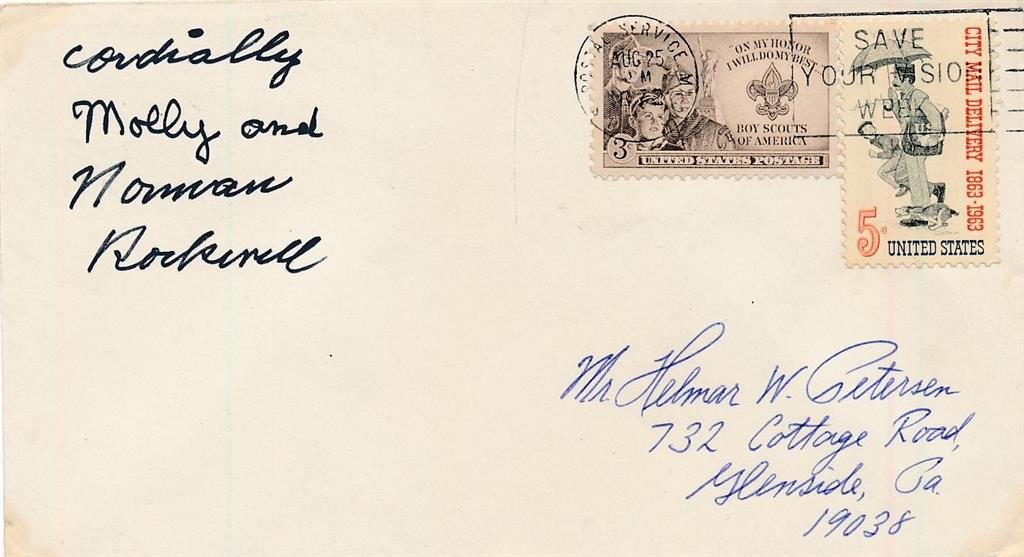 cordially
Molly and
Norman
Rockwell
POSTAL SERVICE
AUG 25
PM
"ON MY HONOR
I WILL DO MY BEST"
BOY SCOUTS
OF AMERICA
3¢
UNITED STATES POSTAGE
SAVE
YOUR VISION
WEEK
CITY MAIL DELIVERY 1863-1963
US
5¢
UNITED STATES
Mr Helmar W. Petersen
732 Cottage Road,
Glenside, Pa.
19038